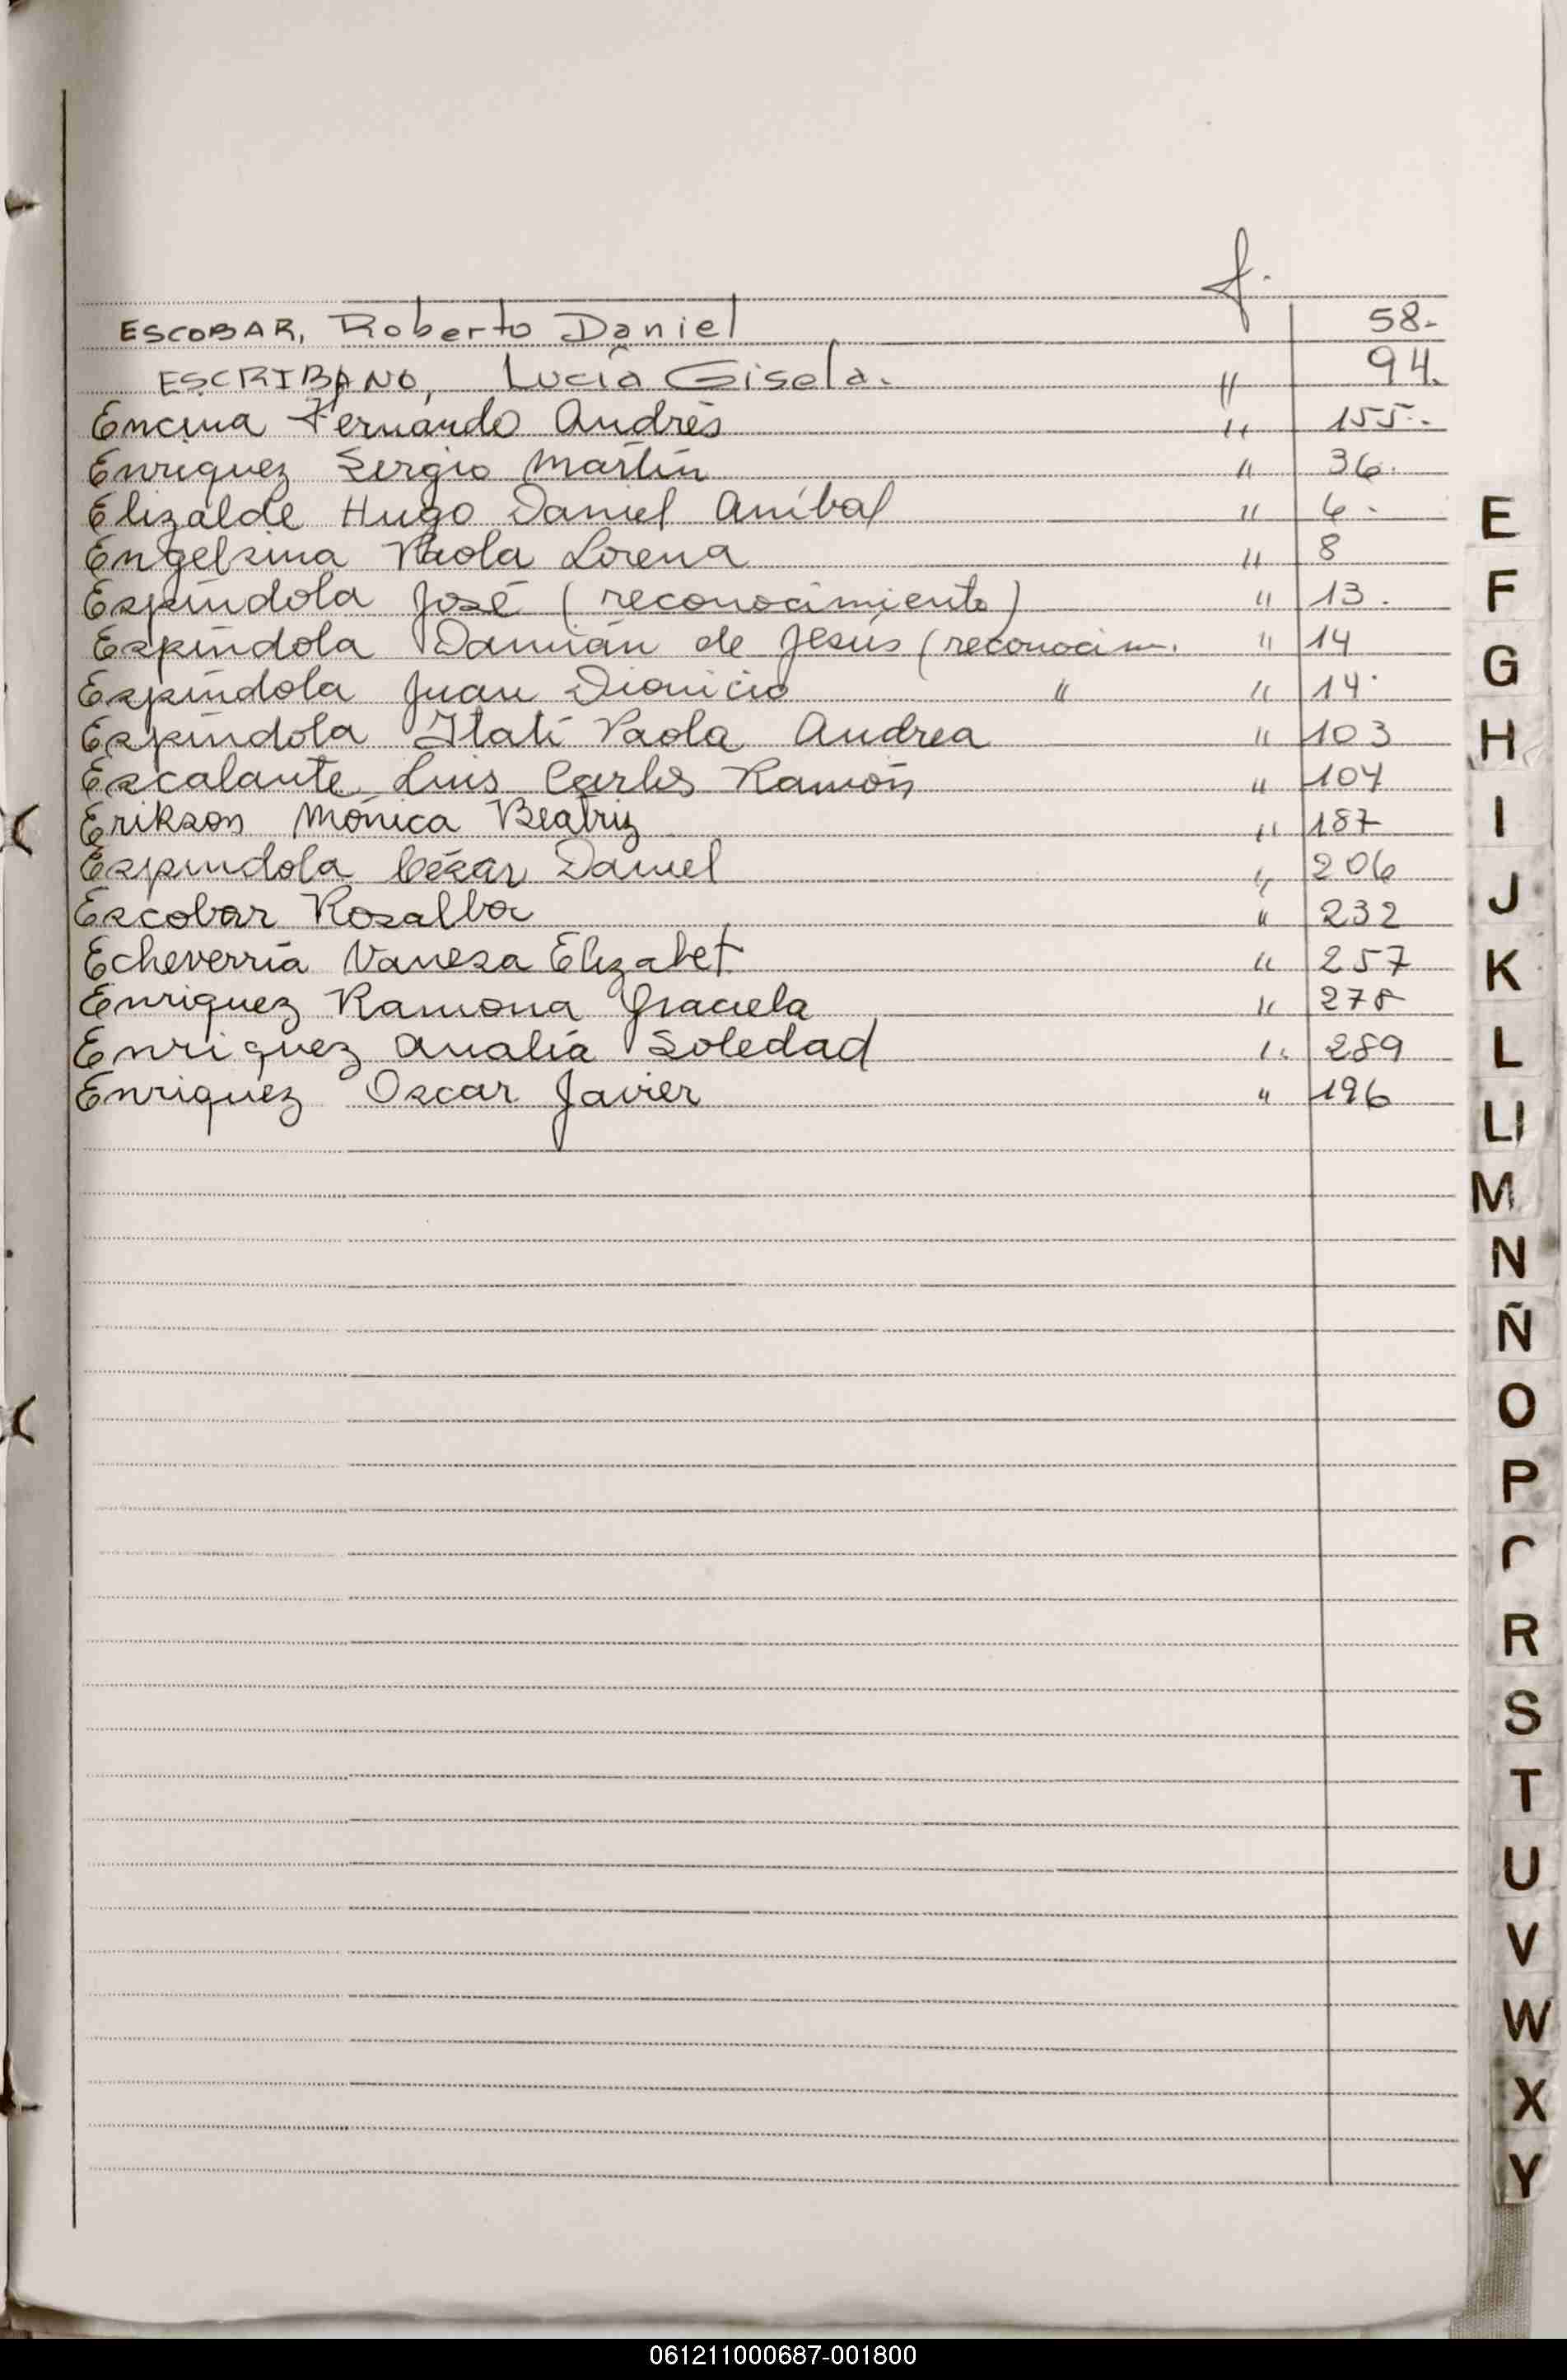 f.
ESCOBAR, Roberto Daniel 58.
ESCRIBANO, Lucía Gisela. " 94.
Encina Fernando Andrés " 155.
Enriquez Sergio Martín " 36.
Elizalde Hugo Daniel Aníbal " 6.
Engelsina Paola Lorena " 8
Espíndola José (reconocimiento) " 13.
Espíndola Damián de Jesús (reconocim. " 14
Espíndola Juan Dionicio " " 14.
Espíndola Itatí Paola Andrea " 103
Escalante Luis Carlos Ramón " 104
Erikson Mónica Beatriz " 187
Espíndola César Daniel " 206
Escobar Rosalba " 232
Echeverría Vanesa Elizabet " 257
Enriquez Ramona Graciela " 278
Enriquez Analía Soledad " 289
Enriquez Oscar Javier " 196
E
F
G
H
I
J
K
L
Ll
M
N
Ñ
O
P
R
S
T
U
V
W
X
Y
061211000687-001800